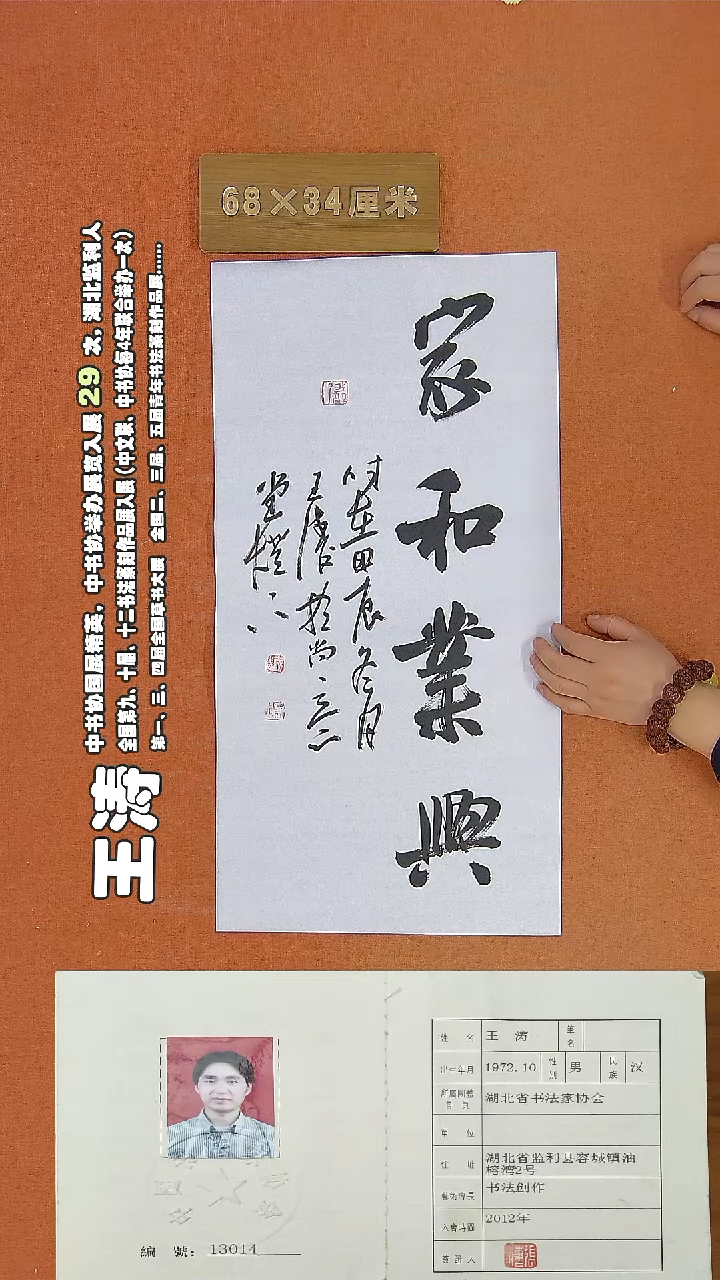 68×34厘米
家和業興
时在甲辰冬月
王涛
中书协国展精英，中书协举办展览入展 29 次，湖北监利人
全国第九、十届、十二书法篆刻作品展入展（中文联、中书协每4年联合举办一次）
第一、三、四届全国草书大展 全国二、三届、五届青年书法篆刻作品展……
編 號：13014
姓 名 王 涛 筆名
出生年月 1972.10 性别 男 民族 汉
所屬團體會員 湖北省书法家协会
單 位
住 址 湖北省监利县容城镇油榨湾2号
藝術專長 书法创作
入會時間 2012年
簽證人